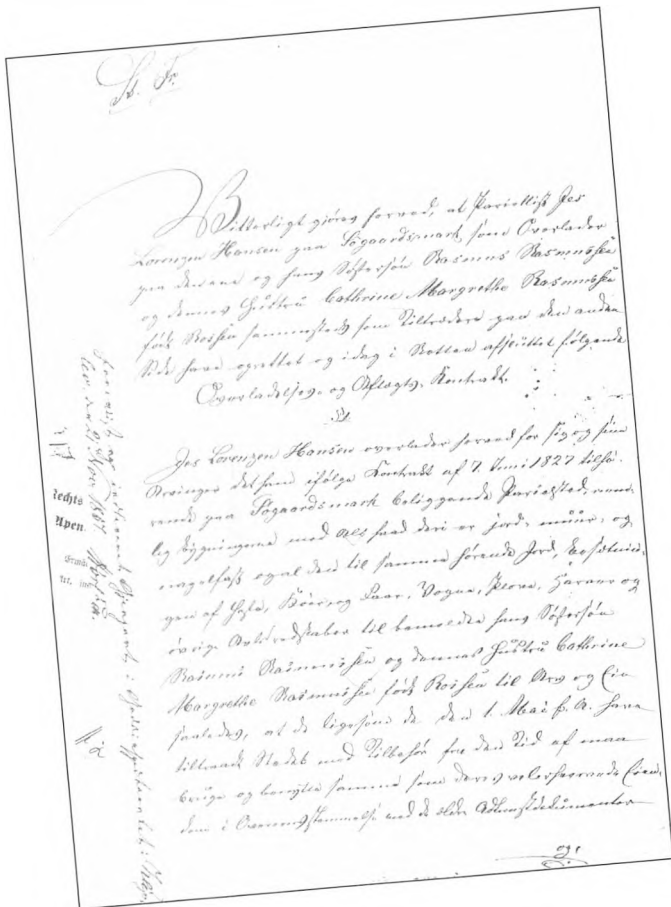 Vitterligt gjøres herved, at Parcellist Jes
Lorenzen Hansen paa Søgaardsmark, som Overlader
paa den ene og hans Søstersøn Rasmus Rasmussen
og dennes Hustru Cathrine Margrethe Rasmussen
født Roshen sammesteds som Tiltrædere paa den anden
Side have oprettet og idag i Retten afsluttet følgende
Overladelses- og Aftægts-Kontrakt.
§ 1
Jes Lorenzen Hansen overlader herved for sig og sine
Arvinger det ham ifølge Kontrakt af 7. Juni 1827 tilhø-
rende paa Søgaardsmark beliggende Parcelsted, nem-
lig Bygningerne med Alt hvad deri er jord-, muur- og
nagelfast og al den til samme hørende Jord, Besætnin-
gen af Heste, Køer, og Faar, Vogne, Plove, Harver og
øvrige Avlsredskaber til bemeldte hans Søstersøn
Rasmus Rasmussen og dennes Hustru Cathrine
Margrethe Rasmussen født Roshen til Arv og Eie
saaledes, at de ligesom de den 1. Mai d. A. have
tiltraadt Stedet med Tilbehør fra den Tid af maa
bruge og benytte samme som deres velerhvervede Eien-
dom i Overensstemmelse med de ældre Adkomstdokumenter
og
Rechts
Apen